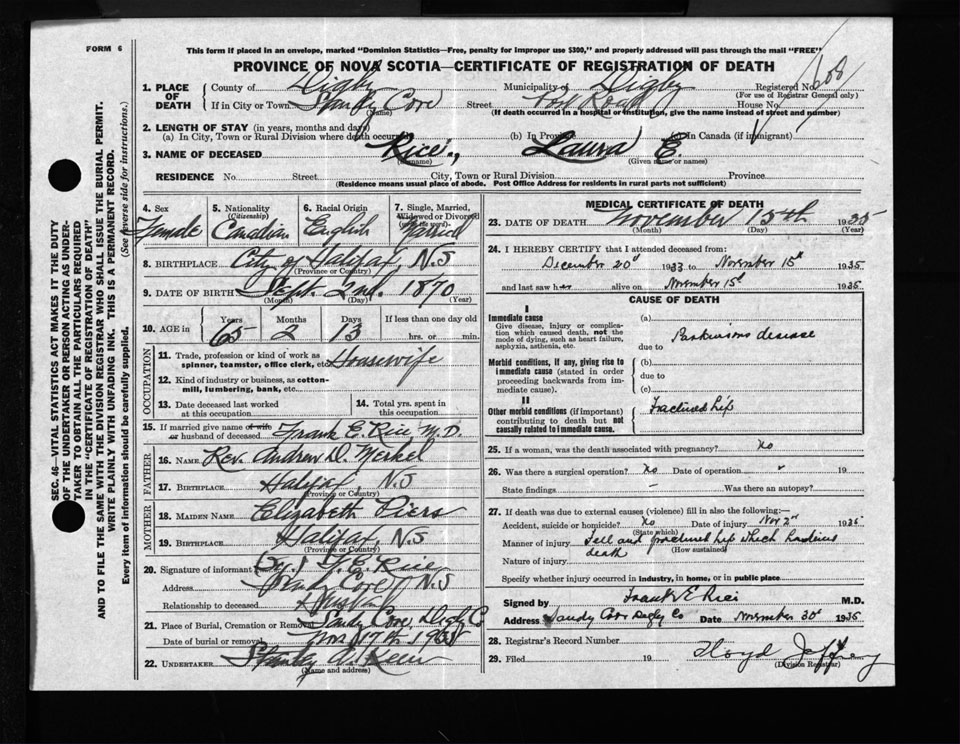 FORM 6
This form if placed in an envelope, marked "Dominion Statistics—Free, penalty for improper use $300," and properly addressed will pass through the mail "FREE"
PROVINCE OF NOVA SCOTIA—CERTIFICATE OF REGISTRATION OF DEATH
SEC. 46—VITAL STATISTICS ACT MAKES IT THE DUTY
OF THE UNDERTAKER OR PERSON ACTING AS UNDER-
TAKER TO OBTAIN ALL THE PARTICULARS REQUIRED
IN THE "CERTIFICATE OF REGISTRATION OF DEATH"
AND TO FILE THE SAME WITH THE DIVISION REGISTRAR WHO SHALL ISSUE THE BURIAL PERMIT.
WRITE PLAINLY WITH UNFADING INK. THIS IS A PERMANENT RECORD.
Every item of information should be carefully supplied. (See reverse side for instructions.)
1. PLACE OF DEATH
County of Digby Municipality of Digby Registered No.
(For use of Registrar General only)
If in City or Town Sandy Cove Street House No.
(Name) (If death occurred in a hospital or institution, give the name instead of street and number)
2. LENGTH OF STAY (in years, months and days)
(a) In City, Town or Rural Division where death occurred (b) In Province (c) In Canada (if immigrant)
3. NAME OF DECEASED Rice, Laura E.
(Surname) (Given name or names)
RESIDENCE No. Street City, Town or Rural Division Province
(Residence means usual place of abode. Post Office Address for residents in rural parts not sufficient)
4. Sex Female
5. Nationality (Citizenship) Canadian
6. Racial Origin English
7. Single, Married, Widowed or Divorced (write the word) Married
8. BIRTHPLACE City of Halifax N.S
(Province or Country)
9. DATE OF BIRTH Sept. 2nd. 1870
(Month) (Day) (Year)
10. AGE in Years 65 Months 2 Days 13 If less than one day old hrs. or min.
OCCUPATION
11. Trade, profession or kind of work as spinner, teamster, office clerk, etc. Housewife
12. Kind of industry or business, as cotton-mill, lumbering, bank, etc.
13. Date deceased last worked at this occupation
14. Total yrs. spent in this occupation
15. If married give name of wife or husband of deceased Frank E. Rice M.D.
FATHER
16. NAME Rev. Andrew D. Merkel
17. BIRTHPLACE Halifax, N.S
(Province or Country)
MOTHER
18. MAIDEN NAME Elizabeth Piers
19. BIRTHPLACE Halifax, N.S
(Province or Country)
20. Signature of informant F. E. Rice
Address Sandy Cove N.S
Relationship to deceased Husband
21. Place of Burial, Cremation or Removal Sandy Cove, Digby Co
Date of burial or removal Nov 17th 1935
22. UNDERTAKER Stanley
(Name and address)
MEDICAL CERTIFICATE OF DEATH
23. DATE OF DEATH November 15th 1935
(Month) (Day) (Year)
24. I HEREBY CERTIFY that I attended deceased from:
December 20th 1933 to November 15th 1935
and last saw her alive on November 15th 1935
CAUSE OF DEATH
I
Immediate cause
Give disease, injury or complication which caused death, not the mode of dying, such as heart failure, asphyxia, asthenia, etc.
(a) Parkinsons disease
due to
Morbid conditions, if any, giving rise to immediate cause (stated in order proceeding backwards from immediate cause).
(b)
due to
(c)
II
Other morbid conditions (if important) contributing to death but not causally related to immediate cause.
Fractured hip
25. If a woman, was the death associated with pregnancy? No
26. Was there a surgical operation? No Date of operation " 19
State findings — Was there an autopsy?
27. If death was due to external causes (violence) fill in also the following:—
Accident, suicide or homicide? No Date of injury Nov 2nd 1935
(State which)
Manner of injury Fell and fractured hip which
death (How sustained)
Nature of injury
Specify whether injury occurred in industry, in home, or in public place
Signed by Frank E Rice M.D.
Address Sandy Cove Digby Co Date November 30th 1935
28. Registrar's Record Number
29. Filed 19 Floyd Jeffrey
(Division Registrar)